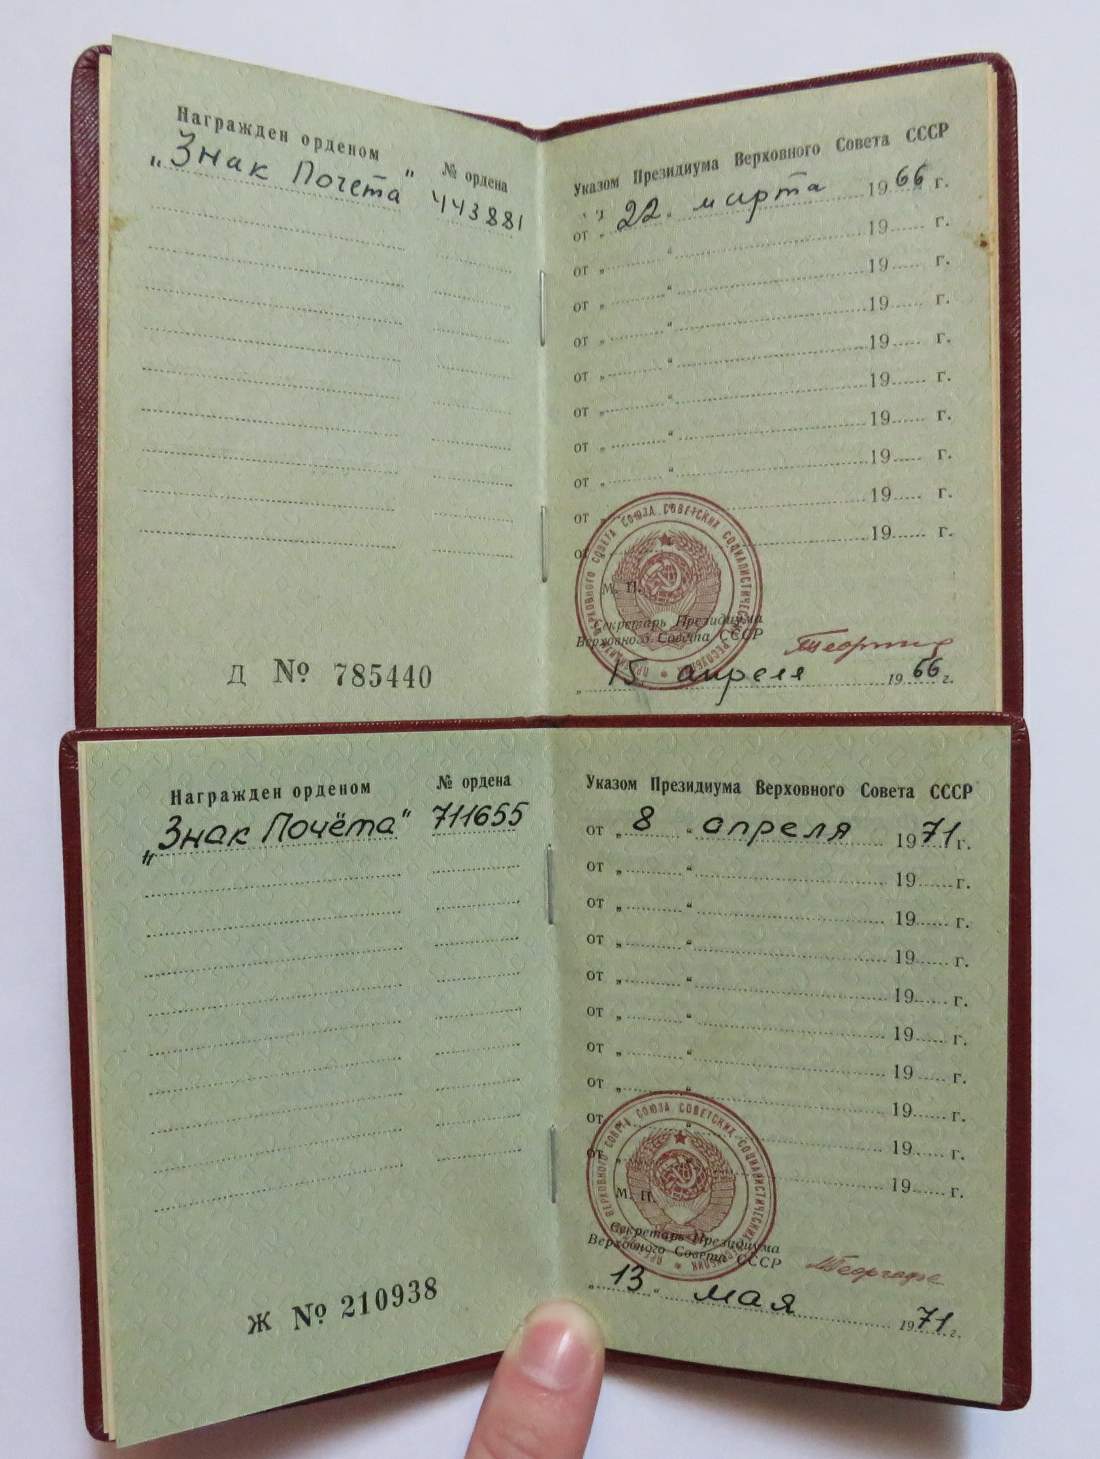 Награжден орденом
№ ордена
„Знак Почета" 443881
Указом Президиума Верховного Совета СССР
от „22" марта 1966 г.
от „ " 19 г.
от „ " 19 г.
от „ " 19 г.
от „ " 19 г.
от „ " 19 г.
от „ " 19 г.
от „ " 19 г.
от „ " 19 г.
от „ " 19 г.
ПРЕЗИДИУМ ВЕРХОВНОГО СОВЕТА СОЮЗА СОВЕТСКИХ СОЦИАЛИСТИЧЕСКИХ РЕСПУБЛИК
М. П.
Секретарь Президиума
Верховного Совета СССР
„15 апреля 1966 г.
Д № 785440
Награжден орденом
№ ордена
„Знак Почёта" 711655
Указом Президиума Верховного Совета СССР
от „8" апреля 1971 г.
от „ " 19 г.
от „ " 19 г.
от „ " 19 г.
от „ " 19 г.
от „ " 19 г.
от „ " 19 г.
от „ " 19 г.
от „ " 19 г.
от „ " 19 г.
ПРЕЗИДИУМ ВЕРХОВНОГО СОВЕТА СОЮЗА СОВЕТСКИХ СОЦИАЛИСТИЧЕСКИХ РЕСПУБЛИК
М. П.
Секретарь Президиума
Верховного Совета СССР
„13" мая 1971 г.
Ж № 210938